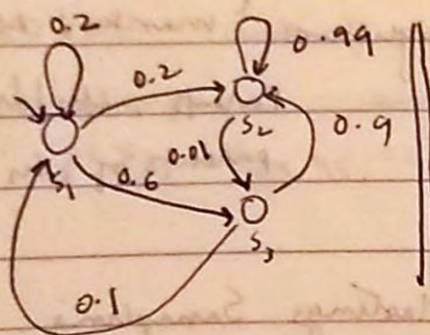 0.2
0.99
0.2
s₂
0.9
0.01
s₁
0.6
s₃
0.1